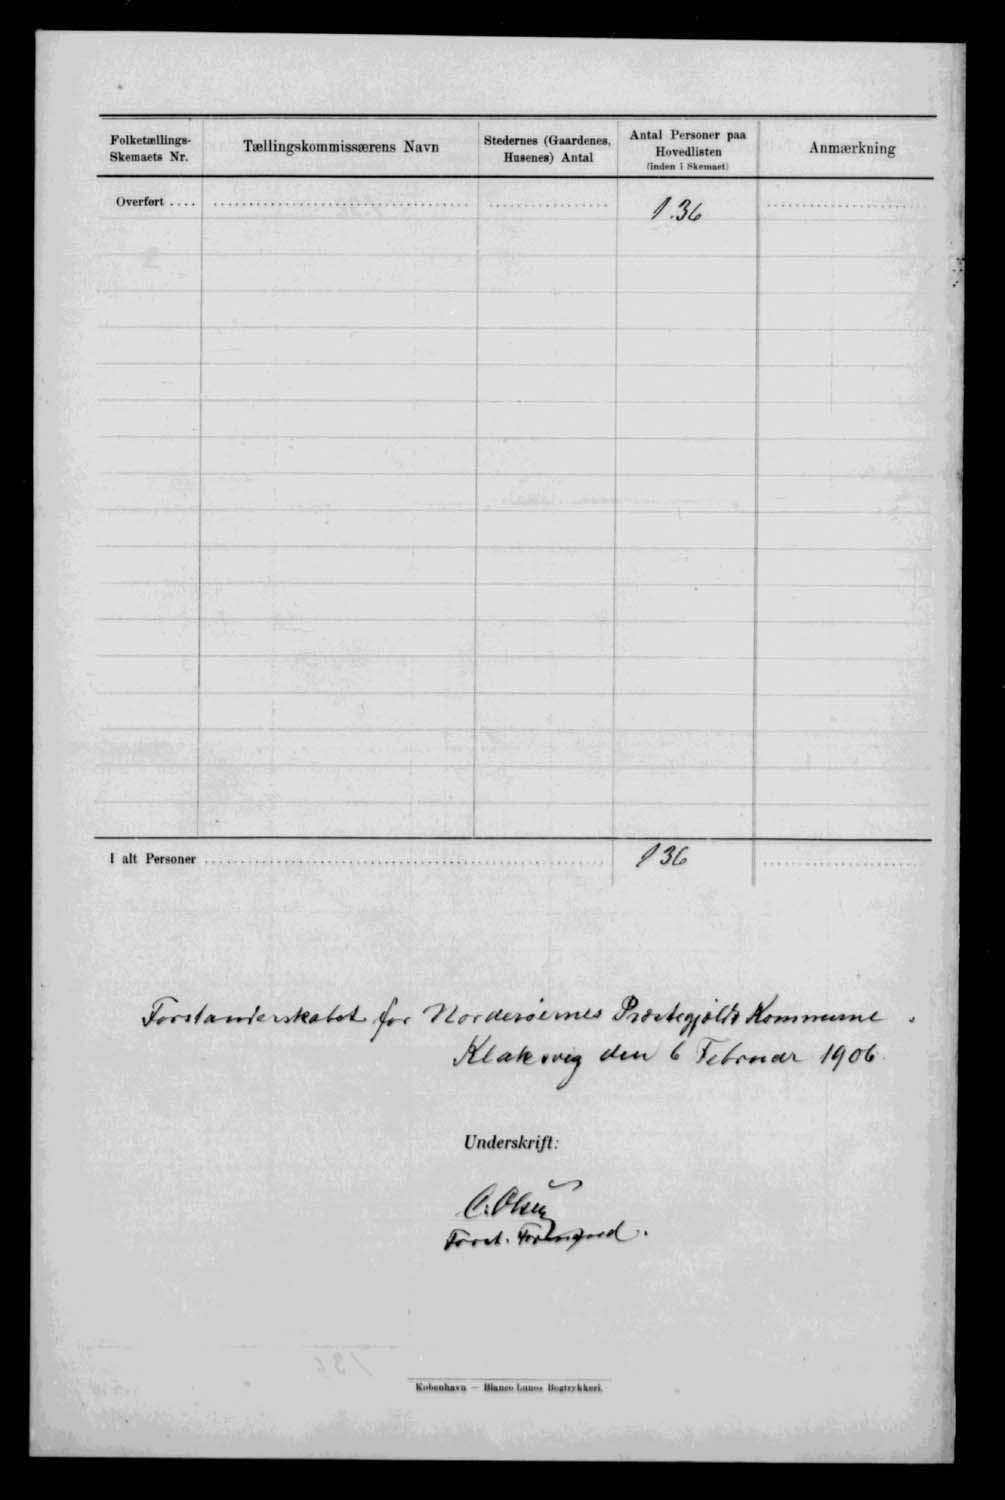 Folketællings-
Skemaets Nr.
Tællingskommissærens Navn
Stedernes (Gaardenes,
Husenes) Antal
Antal Personer paa
Hovedlisten
(inden i Skemaet)
Anmærkning
Overført .... 1.36
I alt Personer 136
Forstanderskabet for Norderöernes Præstegjælds Kommune.
Klaksvig den 6 Februar 1906
Underskrift:
C. Olsen
Forst. Formand.
København — Bianco Lunos Bogtrykkeri.